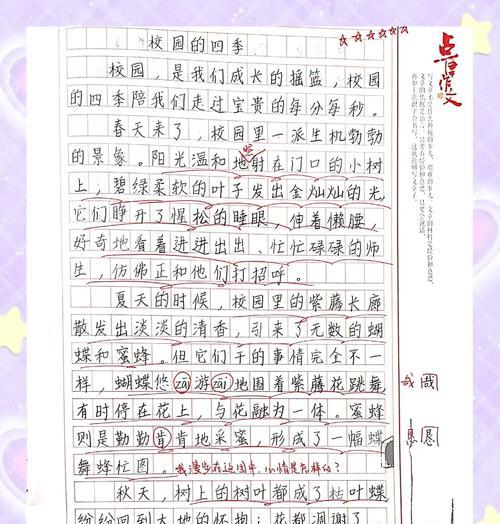 校园的四季
校园，是我们成长的摇篮，校园
的四季陪我们走过宝贵的每分每秒。
春天来了，校园里一派生机勃勃
的景象。阳光温和地射在门口的小树
上，碧绿柔软的叶子发出金灿灿的光，
它们睁开了惺松的睡眼，伸着懒腰，
好奇地看着进进出出、忙忙碌碌的师
生，仿佛正和他们打招呼。
夏天的时候，校园里的紫藤长廊
散发出淡淡的清香，引来了无数的蝴
蝶和蜜蜂。但它们干的事情完全不一
样，蝴蝶悠zāi游zāi地围着紫藤花跳舞，
有时停在花上，与花融为一体。蜜蜂
则是勤勤肯肯地采蜜，形成了一幅蝶
舞蜂忙图。我漫步在这图中，心情是怎样的？
秋天，树上的树叶都成了枯叶蝶
纷纷回到大地的怀抱；花都凋谢了，
哉
恳 恳